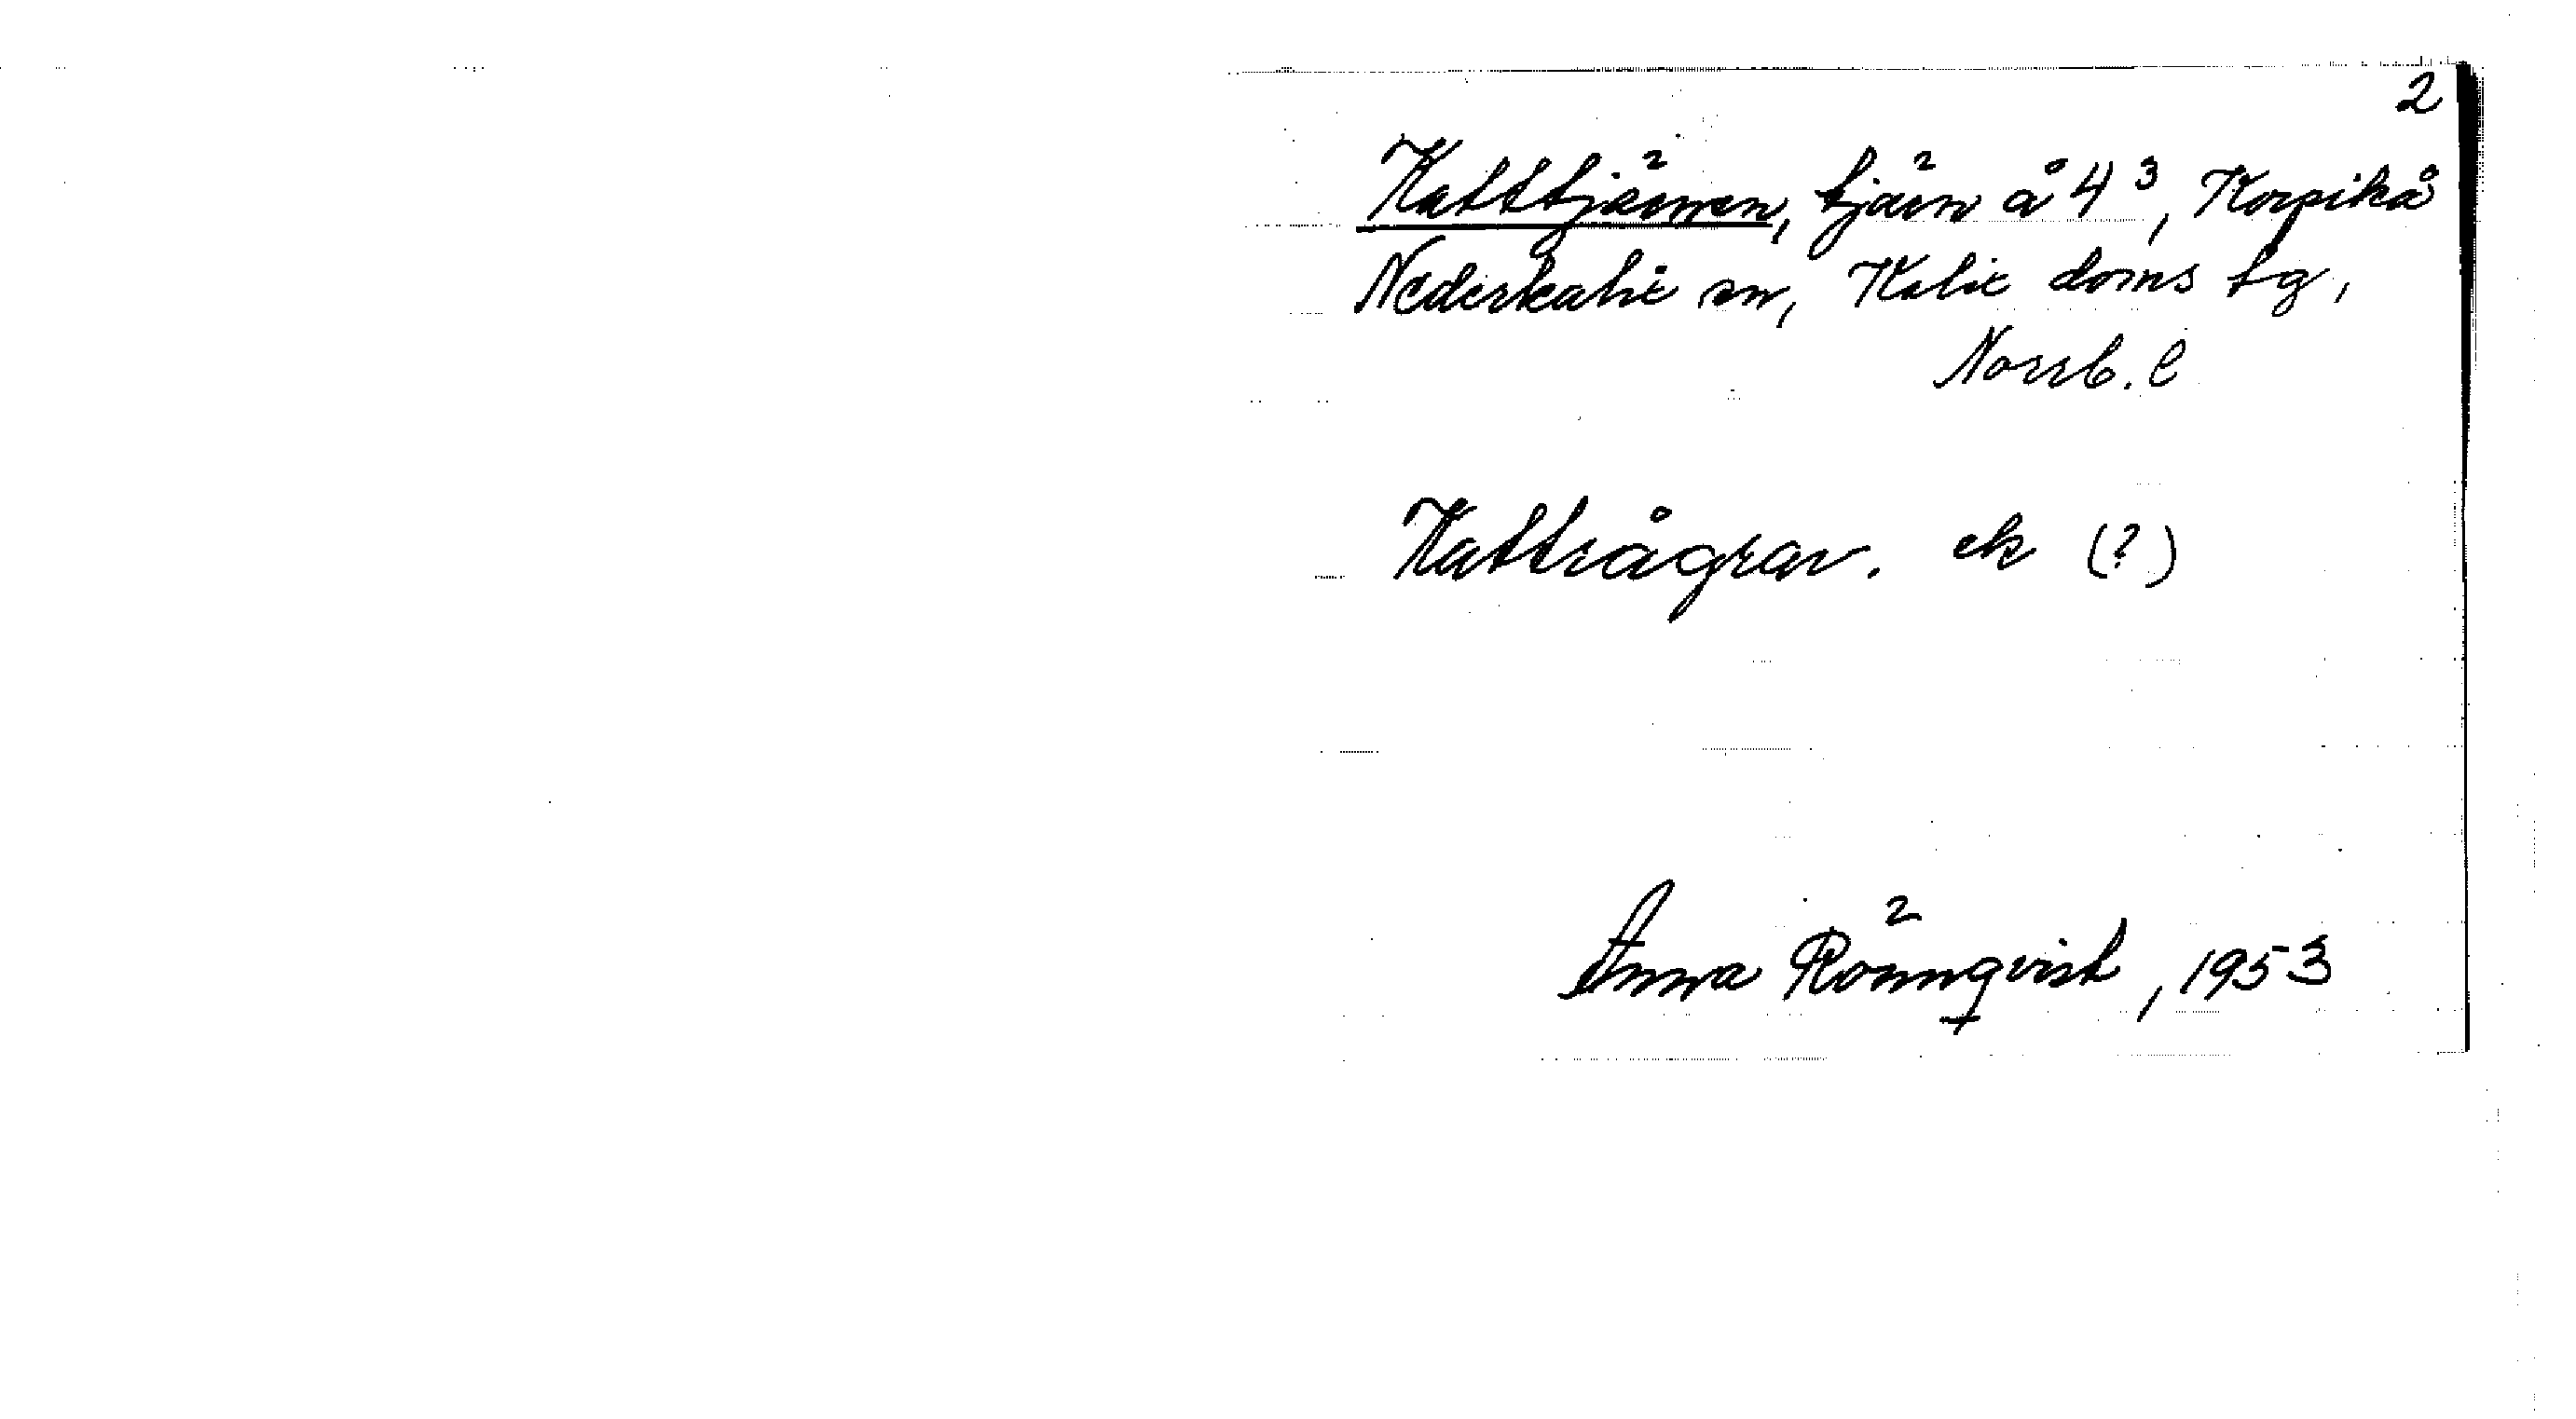 2
Katttjärnen, tjärn å 4³, Korpikå
Nederkalix sn, Kalix doms tg,
Norrb. l
Kattrågrav. ek (?)
Anna Rönnqvist, 1953